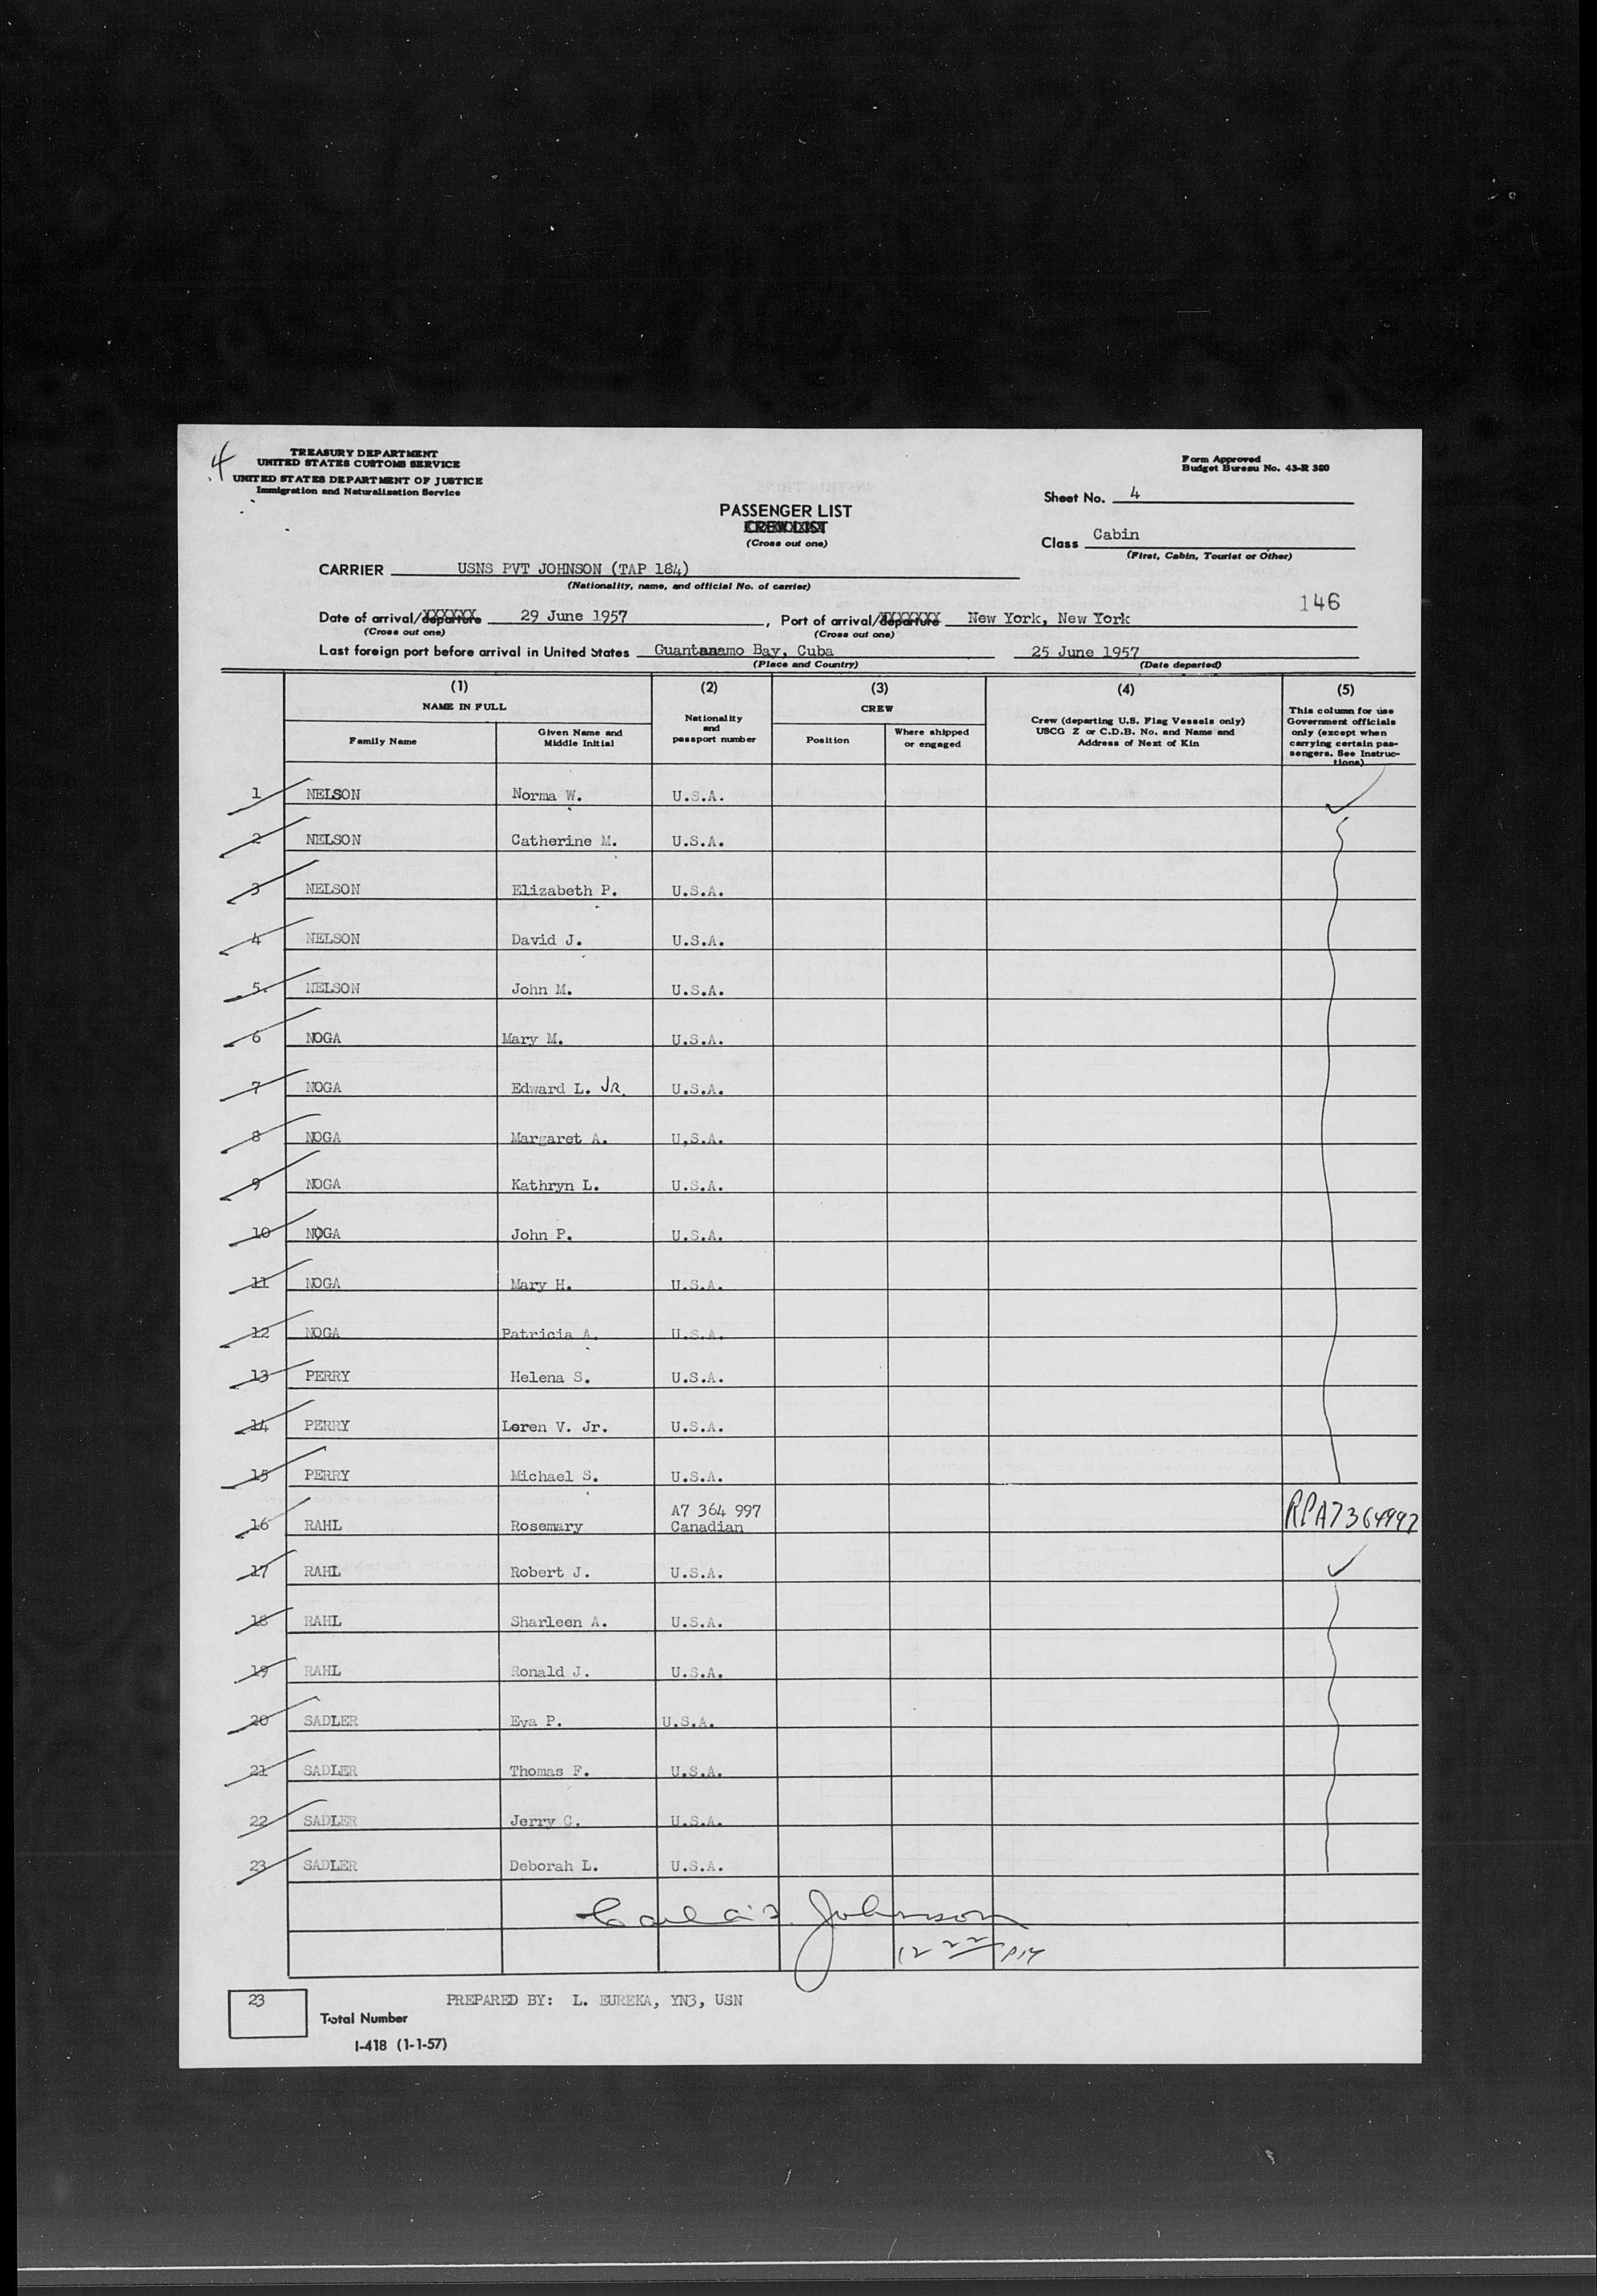 4
TREASURY DEPARTMENT
UNITED STATES CUSTOMS SERVICE
UNITED STATES DEPARTMENT OF JUSTICE
Immigration and Naturalization Service
Form Approved
Budget Bureau No. 43-R 380
Sheet No. 4
PASSENGER LIST
CREW LIST
(Cross out one)
Class Cabin
(First, Cabin, Tourist or Other)
CARRIER USNS PVT JOHNSON (TAP 184)
(Nationality, name, and official No. of carrier)
146
Date of arrival/departure 29 June 1957, Port of arrival/departure New York, New York
(Cross out one) (Cross out one)
Last foreign port before arrival in United States Guantanamo Bay, Cuba 25 June 1957
(Place and Country) (Date departed)
(1) (2) (3) (4) (5)
NAME IN FULL
Family Name
Given Name and
Middle Initial
Nationality
and
passport number
CREW
Position
Where shipped
or engaged
Crew (departing U.S. Flag Vessels only)
USCG Z or C.D.B. No. and Name and
Address of Next of Kin
This column for use
Government officials
only (except when
carrying certain pas-
sengers. See Instruc-
tions)
1 NELSON Norma W. U.S.A.
2 NELSON Catherine M. U.S.A.
3 NELSON Elizabeth P. U.S.A.
4 NELSON David J. U.S.A.
5. NELSON John M. U.S.A.
6 NOGA Mary M. U.S.A.
7 NOGA Edward L. JR. U.S.A.
8 NOGA Margaret A. U.S.A.
9 NOGA Kathryn L. U.S.A.
10 NOGA John P. U.S.A.
11 NOGA Mary H. U.S.A.
12 NOGA Patricia A. U.S.A.
13 PERRY Helena S. U.S.A.
14 PERRY Loren V. Jr. U.S.A.
15 PERRY Michael S. U.S.A.
A7 364 997
16 RAHL Rosemary Canadian RPA7364997
17 RAHL Robert J. U.S.A.
18 RAHL Sharleen A. U.S.A.
19 RAHL Ronald J. U.S.A.
20 SADLER Eva P. U.S.A.
21 SADLER Thomas F. U.S.A.
22 SADLER Jerry C. U.S.A.
23 SADLER Deborah L. U.S.A.
Johnson
12 22 PM
23
Total Number
PREPARED BY: L. EUREKA, YN3, USN
I-418 (1-1-57)